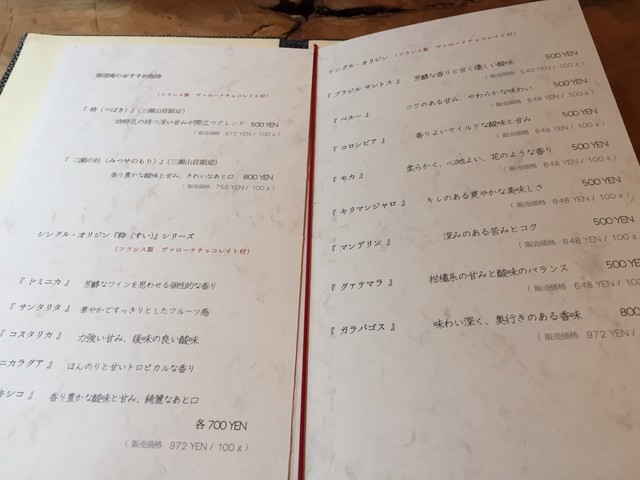 のおすすめ珈琲
(フランス製 ヴァローナチョコレイト付)
『 椿（つばき）』（三瀬山荘限定）
珈琲豆の持つ深い甘みが際立つブレンド 500 YEN
( 販売価格 972 YEN / 100ｇ)
『 三瀬の杜（みつせのもり）』（三瀬山荘限定）
香り豊かな酸味と甘み、きれいなあと口 600 YEN
( 販売価格 756 YEN / 100ｇ)
シングル・オリジン『粋（すい）』シリーズ
(フランス製 ヴァローナチョコレイト付)
『 ドミニカ 』 芳醇なワインを思わせる個性的な香り
『 サンタリタ 』 華やかですっきりとしたフルーツ感
『 コスタリカ 』 力強い甘み、後味の良い酸味
ニカラグア 』 ほんのりと甘いトロピカルな香り
キシコ 』 香り豊かな酸味と甘み、綺麗なあと口
各 700 YEN
( 販売価格 972 YEN / 100ｇ)
シングル・オリジン (フランス製 ヴァローナチョコレイト付)
『 ブラジル サントス 』 芳醇な香りと甘く優しい酸味 500 YEN
( 販売価格 540 YEN / 100ｇ)
『 ペルー 』 コクのある甘み、やわらかな味わい 500 YEN
( 販売価格 648 YEN / 100ｇ)
『 コロンビア 』 香りよいマイルドな酸味と甘み 500 YEN
( 販売価格 648 YEN / 100ｇ)
『 モカ 』 柔らかく、心地よい、花のような香り 500 YEN
( 販売価格 648 YEN / 100ｇ)
『 キリマンジャロ 』 キレのある爽やかな美味しさ 500 YEN
( 販売価格 648 YEN / 100ｇ)
『 マンデリン 』 深みのある苦みとコク 500 YEN
( 販売価格 648 YEN / 100ｇ)
『 グァテマラ 』 柑橘系の甘みと酸味のバランス 500 YEN
( 販売価格 648 YEN / 100
『 ガラパゴス 』 味わい深く、奥行きのある香味 800
( 販売価格 972 YEN /